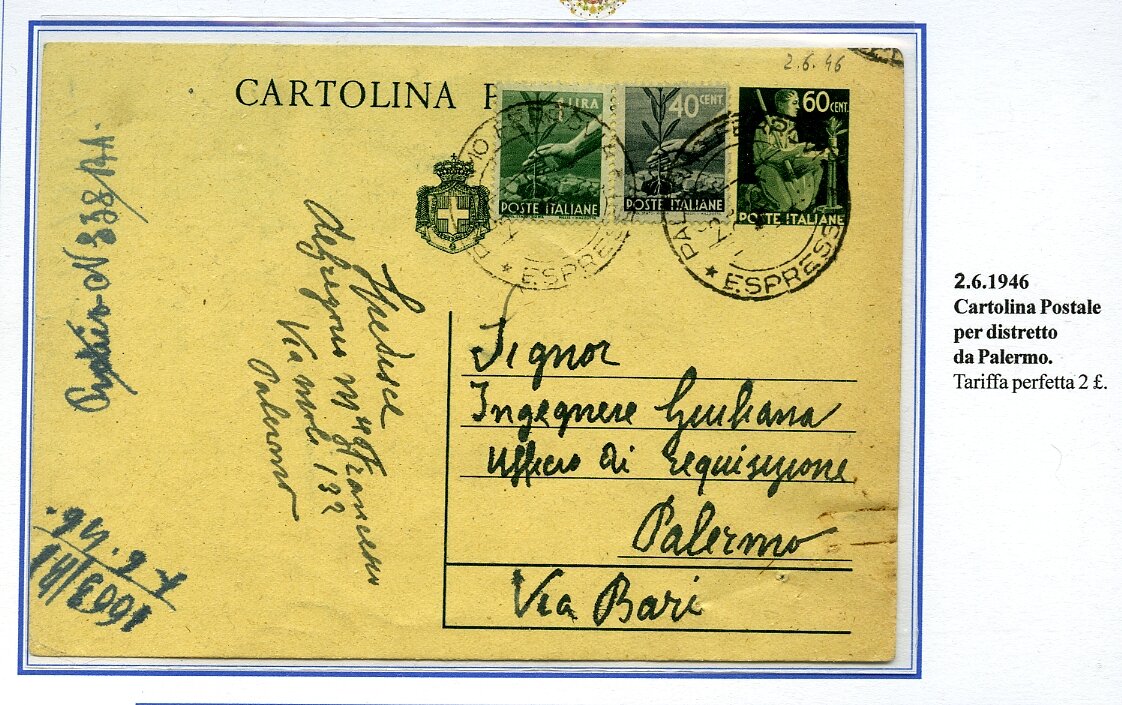 2.6.46
CARTOLINA P
1 LIRA
POSTE ITALIANE
40 CENT.
POSTE ITALIANE
60 CENT.
POSTE ITALIANE
ESPRESS
PAL
ESPRESS
N 338/AA.
Spedisce
Francesco
Via 132
Palermo
Signor
Ingegnere Giuliana
Ufficio di requisizione
Palermo
Via Bari
2.6.1946
Cartolina Postale
per distretto
da Palermo.
Tariffa perfetta 2 £.